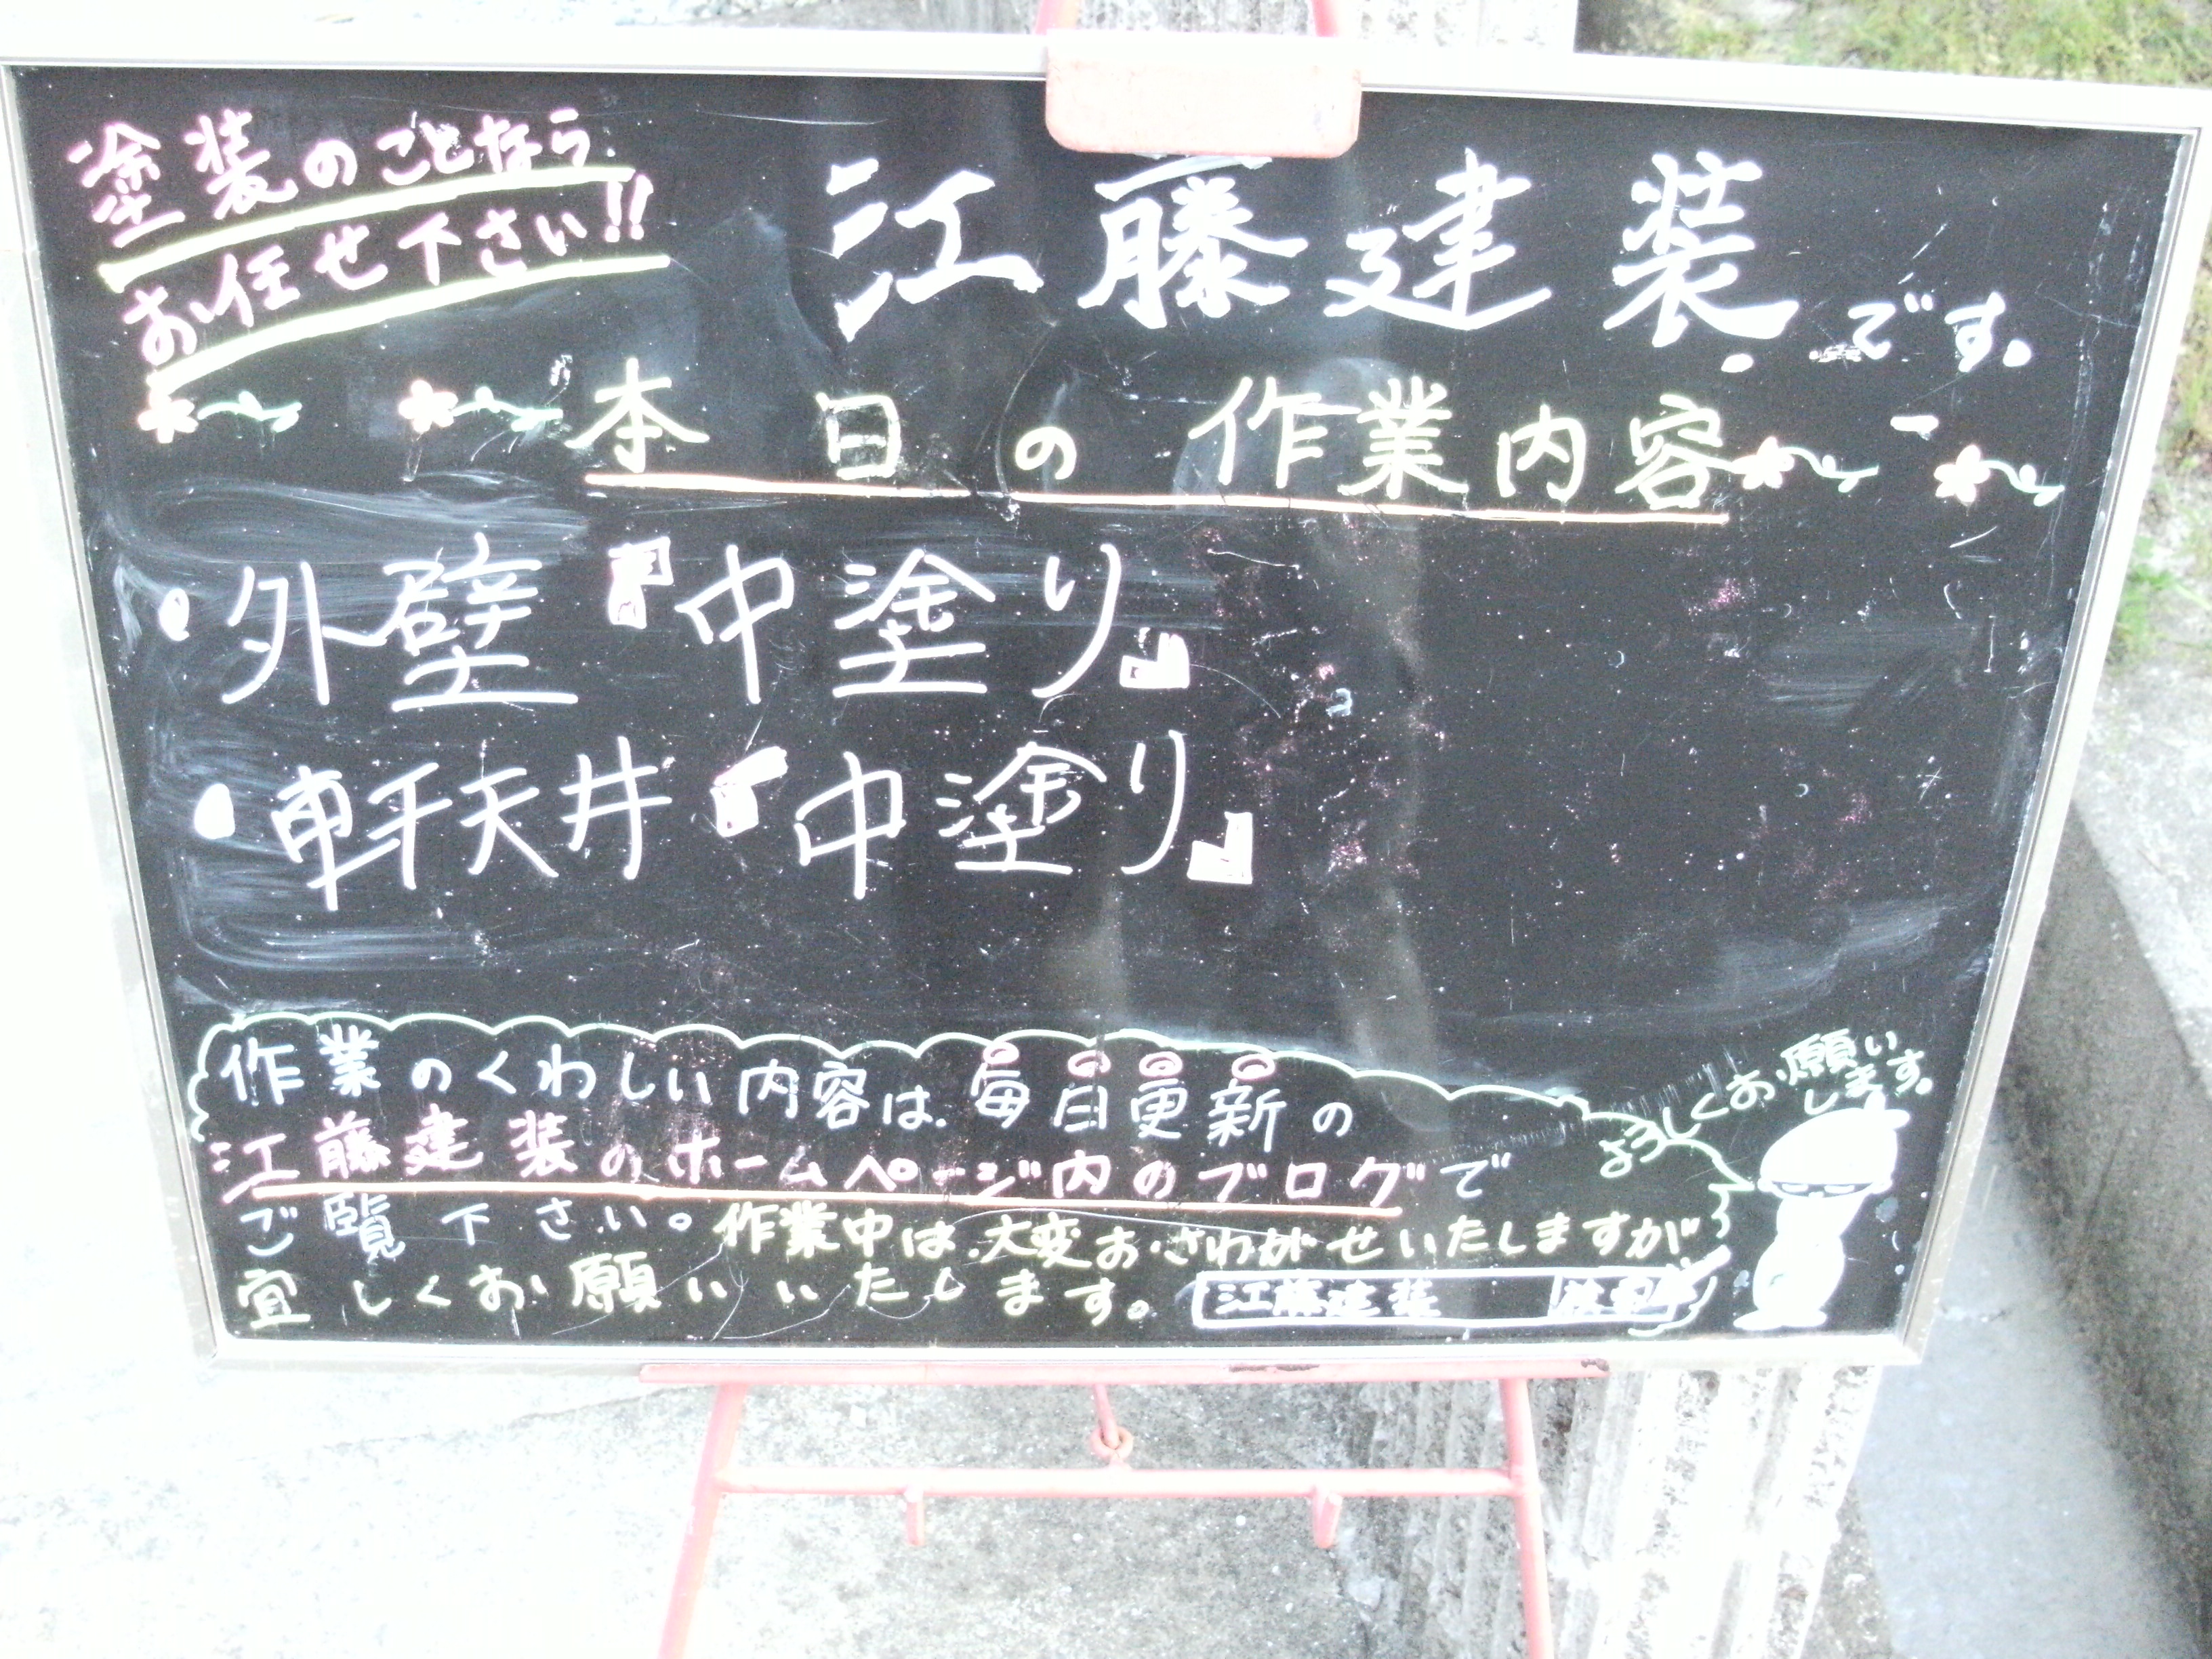 塗装のことなら
お任せ下さい!!
江藤建装です。
本日の作業内容
・外壁『中塗り』
・軒天井『中塗り』
作業のくわしい内容は、毎日更新の
江藤建装のホームページ内のブログで
ご覧下さい。作業中は、大変おさわがせいたしますが
宜しくお願いいたします。
よろしくお願い
します。
江藤建装 検索